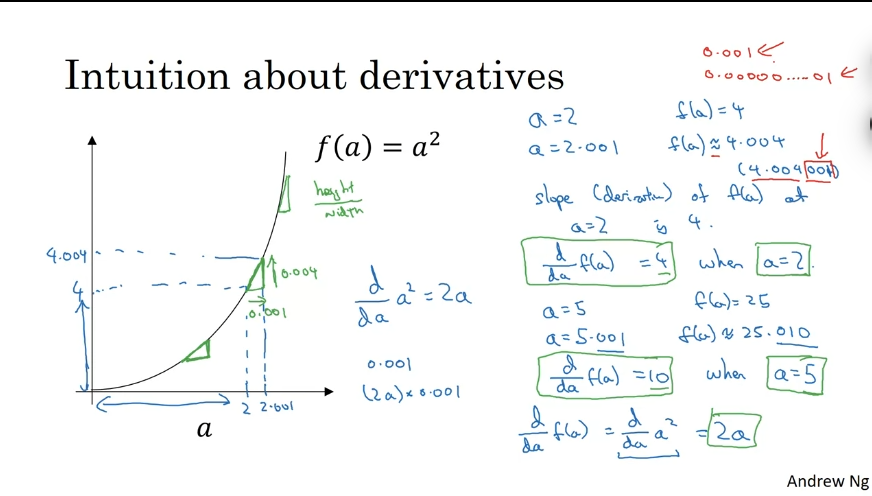 Intuition about derivatives
0.001
0.00000.....01
f(a) = a²
height
width
4.004
4
0.004
0.001
2 2.001
a
d/da a² = 2a
0.001
(2a) × 0.001
a = 2 f(a) = 4
a = 2.001 f(a) ≈ 4.004
(4.004001)
slope (derivative) of f(a) at
a=2 is 4.
d/da f(a) = 4 when a=2.
a = 5 f(a) = 25
a = 5.001 f(a) ≈ 25.010
d/da f(a) = 10 when a=5
d/da f(a) = d/da a² = 2a
Andrew Ng